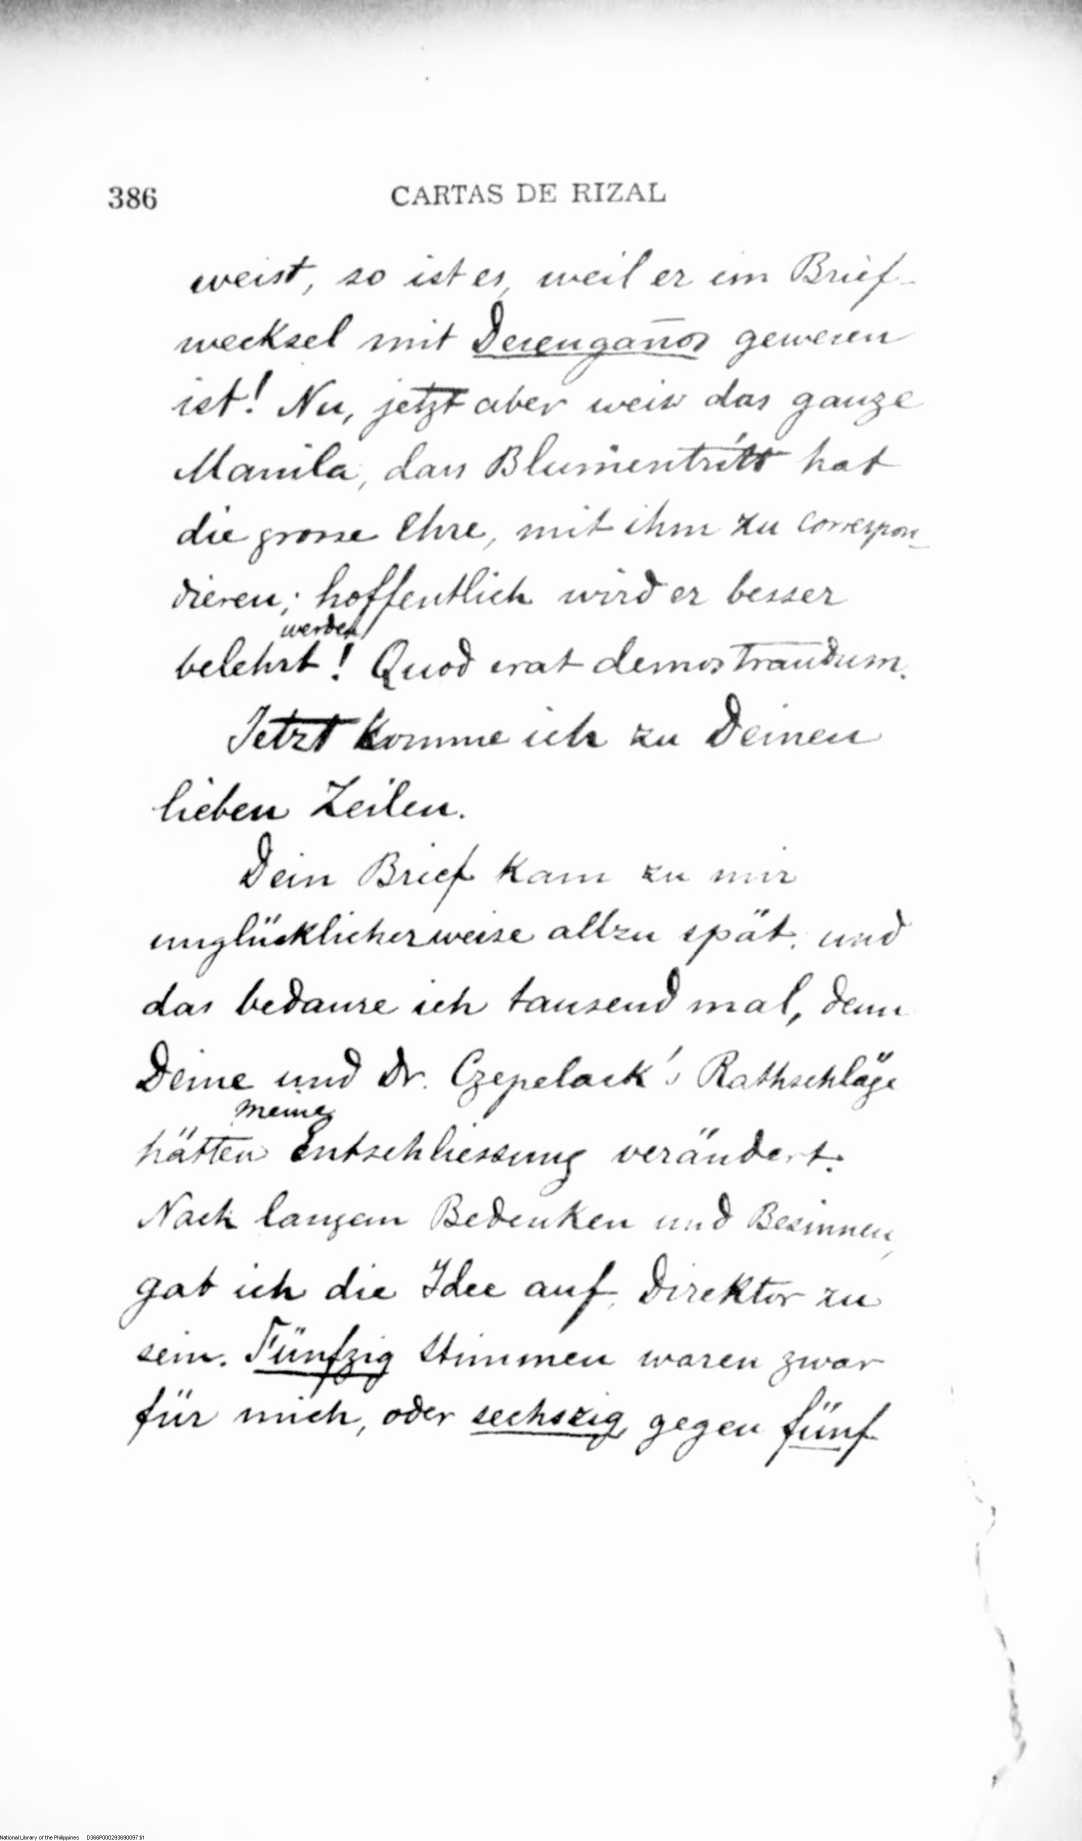 386 CARTAS DE RIZAL
weist, so ist es, weil er im Brief-
wecksel mit Desengaños gewesen
ist! Nu, jetzt aber weiss das ganze
Manila, dass Blumentritt hat
die grosse Ehre, mit ihm zu correspon-
dieren; hoffentlich wird er besser
werden
belehrt! Quod erat demostrandum.
Jetzt komme ich zu Deinen
lieben Zeilen.
Dein Brief kam zu mir
unglücklicherweise allzu spät, und
das bedaure ich tausend mal, denn
Deine und Dr. Czepelack's Rathschläge
meine
hätten Entschliessung verändert.
Nach langem Bedenken und Besinnen,
gab ich die Idee auf, Direktor zu
sein. Fünfzig Stimmen waren zwar
für mich, oder sechszig gegen fünf
National Library of the Philippines